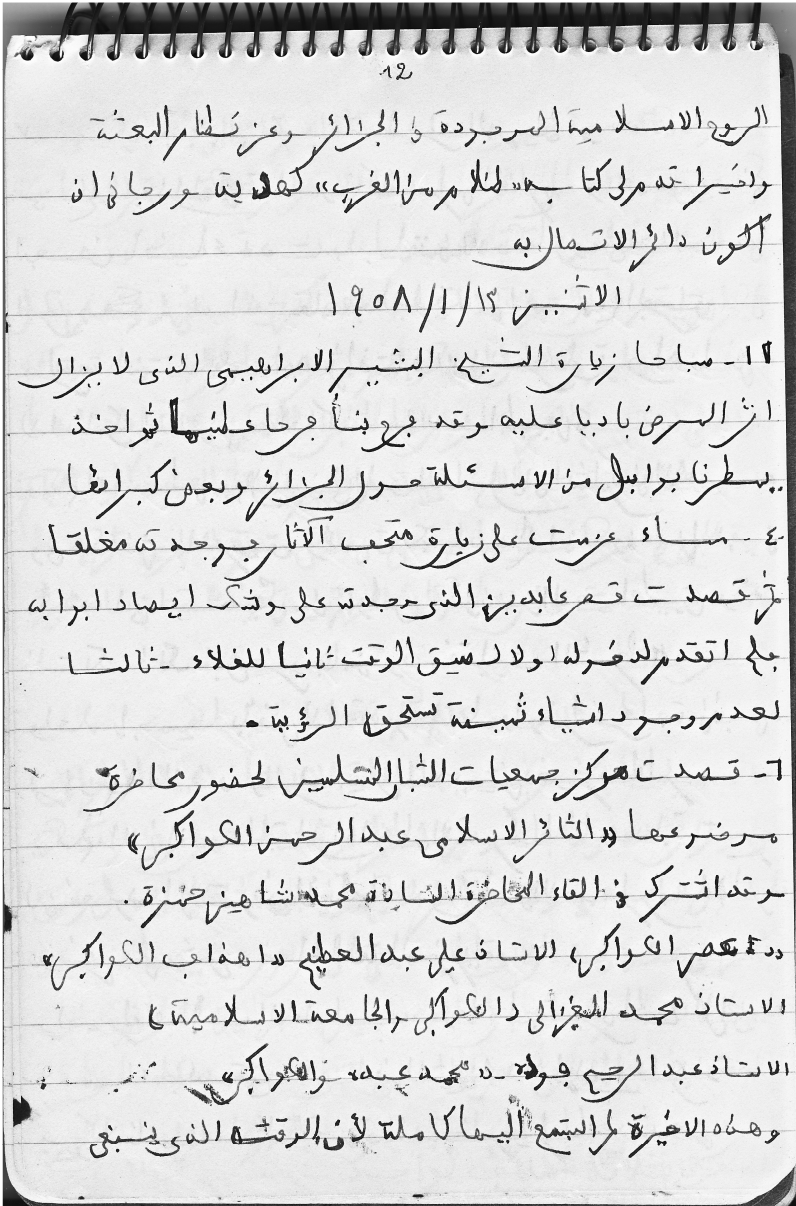 12
الروح الاسلامية الموجودة في الجزائر وعن نظام البعثة
واخيرا قدم لي كتابه «ظلام من الغرب» كهدية ورجاني ان
اكون دائم الاتصال به
الاثنين ١٣/١/١٩٥٨
١١- صباحا زيارة الشيخ البشير الابراهيمي الذي لا يزال
اثر المرض باديا عليه وقد فرح بنا فرحا عظيما ثم اخذ
يمطرنا بوابل من الاسئلة حول الجزائر وبعض كبرائها
٤- مساء عزمت على زيارة متحف الآثار فوجدته مغلقا
ثم قصدت قصر عابدين الذي وجدته على وشك ايصاد ابوابه
فلم اتقدم لدخوله اولا لضيق الوقت ثانيا للغلاء - ثالثا
لعدم وجود اشياء ثمينة تستحق الرؤية.
٦- قصدت مركز جمعيات الشبان المسلمين لحضور محاضرة
موضوعها «الثائر الاسلامي عبد الرحمن الكواكبي»
وقد اشترك في القاء المحاضرة السادة محمد شاهين حمزة.
«عصر الكواكبي» الاستاذ علي عبد العظيم «اهداف الكواكبي»
الاستاذ محمد الغزالي «الكواكبي والجامعة الاسلامية»
الاستاذ عبد الرحيم فودة - «محمد عبده والكواكبي»
وهذه الاخيرة لم استمع اليها كاملة لأن الوقت الذي ينبغي